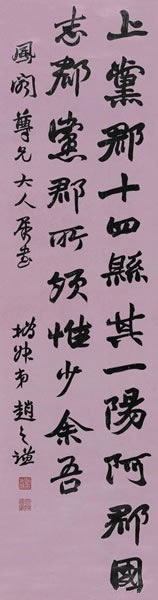 上黨郡十四縣其一陽阿郡國
志郡黨郡所領惟少余吾
鳳閣尊兄大人屬書
趙之謙